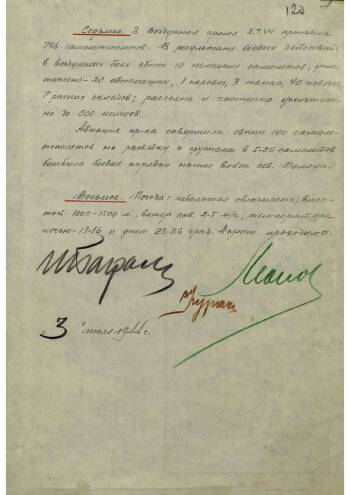 120
Седьмое. 3 Воздушная армия 2.7.44 произвела
756 самолетовылетов. В результате боевых действий:
в воздушных боях сбито 10 немецких самолетов; унич-
тожено - 20 автомашин, 1 паровоз, 3 танка, 40 повозок,
7 разных складов; рассеяно и частично уничтоже-
но до 500 немцев.
Авиация пр-ка совершила свыше 100 самоле-
товылетов на разведку и группами в 5-20 самолетов
бомбила боевые порядки наших войск сев.
Восьмое. Погода: небольшая облачность, высо-
той 1000-1500 м, ветер сев. 2-5 м/с, температура
ночью - 13-16 и днем 23-26 град. Дороги проходимы.
"3" июля 1944 г.